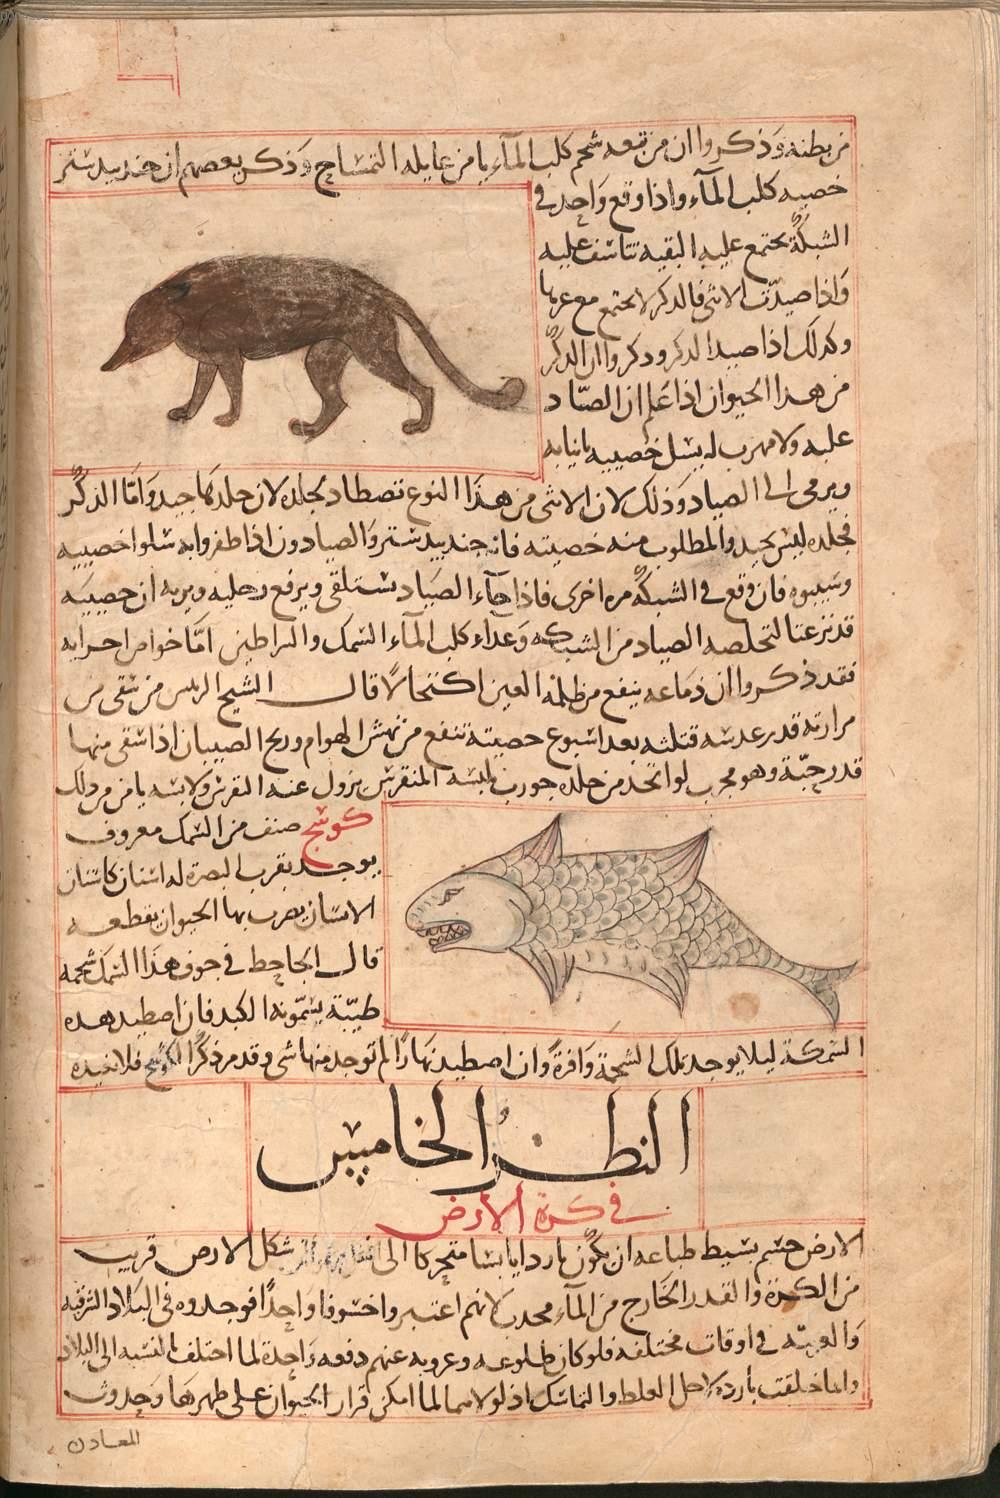 من بطنه وذكروا ان من تبعه شحم كلب المآء يامن غايله التمساح وذكر بعضهم ان جندبيدستر
خصيه كلب المآء واذا وقع واحد في
الشبكة يجتمع عليه البقيه تتاسف عليه
واذا صيدت الانثى فالذكر لا يجتمع مع غيرها
وكذلك اذا صيد الذكر وذكروا ان الذكر
من هذا الحيوان اذا علم ان الصياد
عليه ولا مهرب له يسل خصييه بانيابه
ويرمى الى الصياد وذلك لان الانثى من هذا النوع تصطاد لجلده لان جلدها جيد واما الذكر
فجلده ليس بجيد والمطلوب منه خصيته فانه جندبيدستر والصيادون اذا ظفروا به سلوا خصييه
وسيبوه فان وقع في الشبكة مره اخرى فاذا جآء الصياد ستلقى ويرفع رجليه ويريه ان خصييه
قد نزعتا لتخلصه الصياد من الشبكه وغداء كلب المآء السمك والسراطين اما خواص اجزايه
فقد ذكروا ان دماغه ينفع من ظلمه العين اكتحالا قال الشيخ الريس من سقى من
مرارته قدر عدسه قتلته بعد اسبوع خصيته تنفع من نهش الهوام وريح الصبيان اذا سقى منها
قدر حبة وهو مجرب لو اتخذ من جلده جورب يلبسه المنقرس يزول عنه النقرس ولابسه يامن من ذلك
كوسج صنف من السمك معروف
يوجد بقرب البصرة له اسنان كاسنان
الانسان يضرب بها الحيوان يقطعه
قال الجاحظ في جوف هذا السمك شحمه
طيبة يسمونه الكبد فان اصطيد هذه
السمكة ليلا يوجد تلك الشحمة وافرة وان اصطيد نهارا لم توجد منها شى وقد مر ذكر الكوسج فلا نعيده
النظر الخامس
في كرة الارض
الارض جسم بسيط طباعه ان يكون باردا يابسا متحركا الى شكل الارض قريب
من الكرة والقدر الخارج من المآء محدب لانهم اعتبروا خسوفا واحدا فوجدوه في البلاد الشرقيه
والغربيه في اوقات مختلفه فلو كان طلوعه وغروبه عنهم دفعه واحدة لما اختلف بالنسبه الى البلاد
وانما خلقت بارده لاجل الغلظ والتماسك اذ لولاهما لما امكن قرار الحيوان على ظهرها وحدوث
المعادن